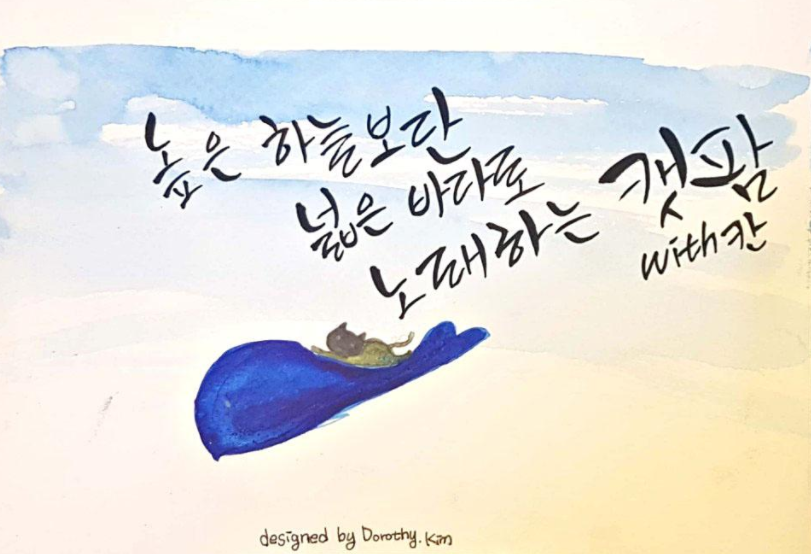 높은 하늘보단
넓은 바다로
노래하는 캣팜
with 칸
designed by Dorothy.Kim